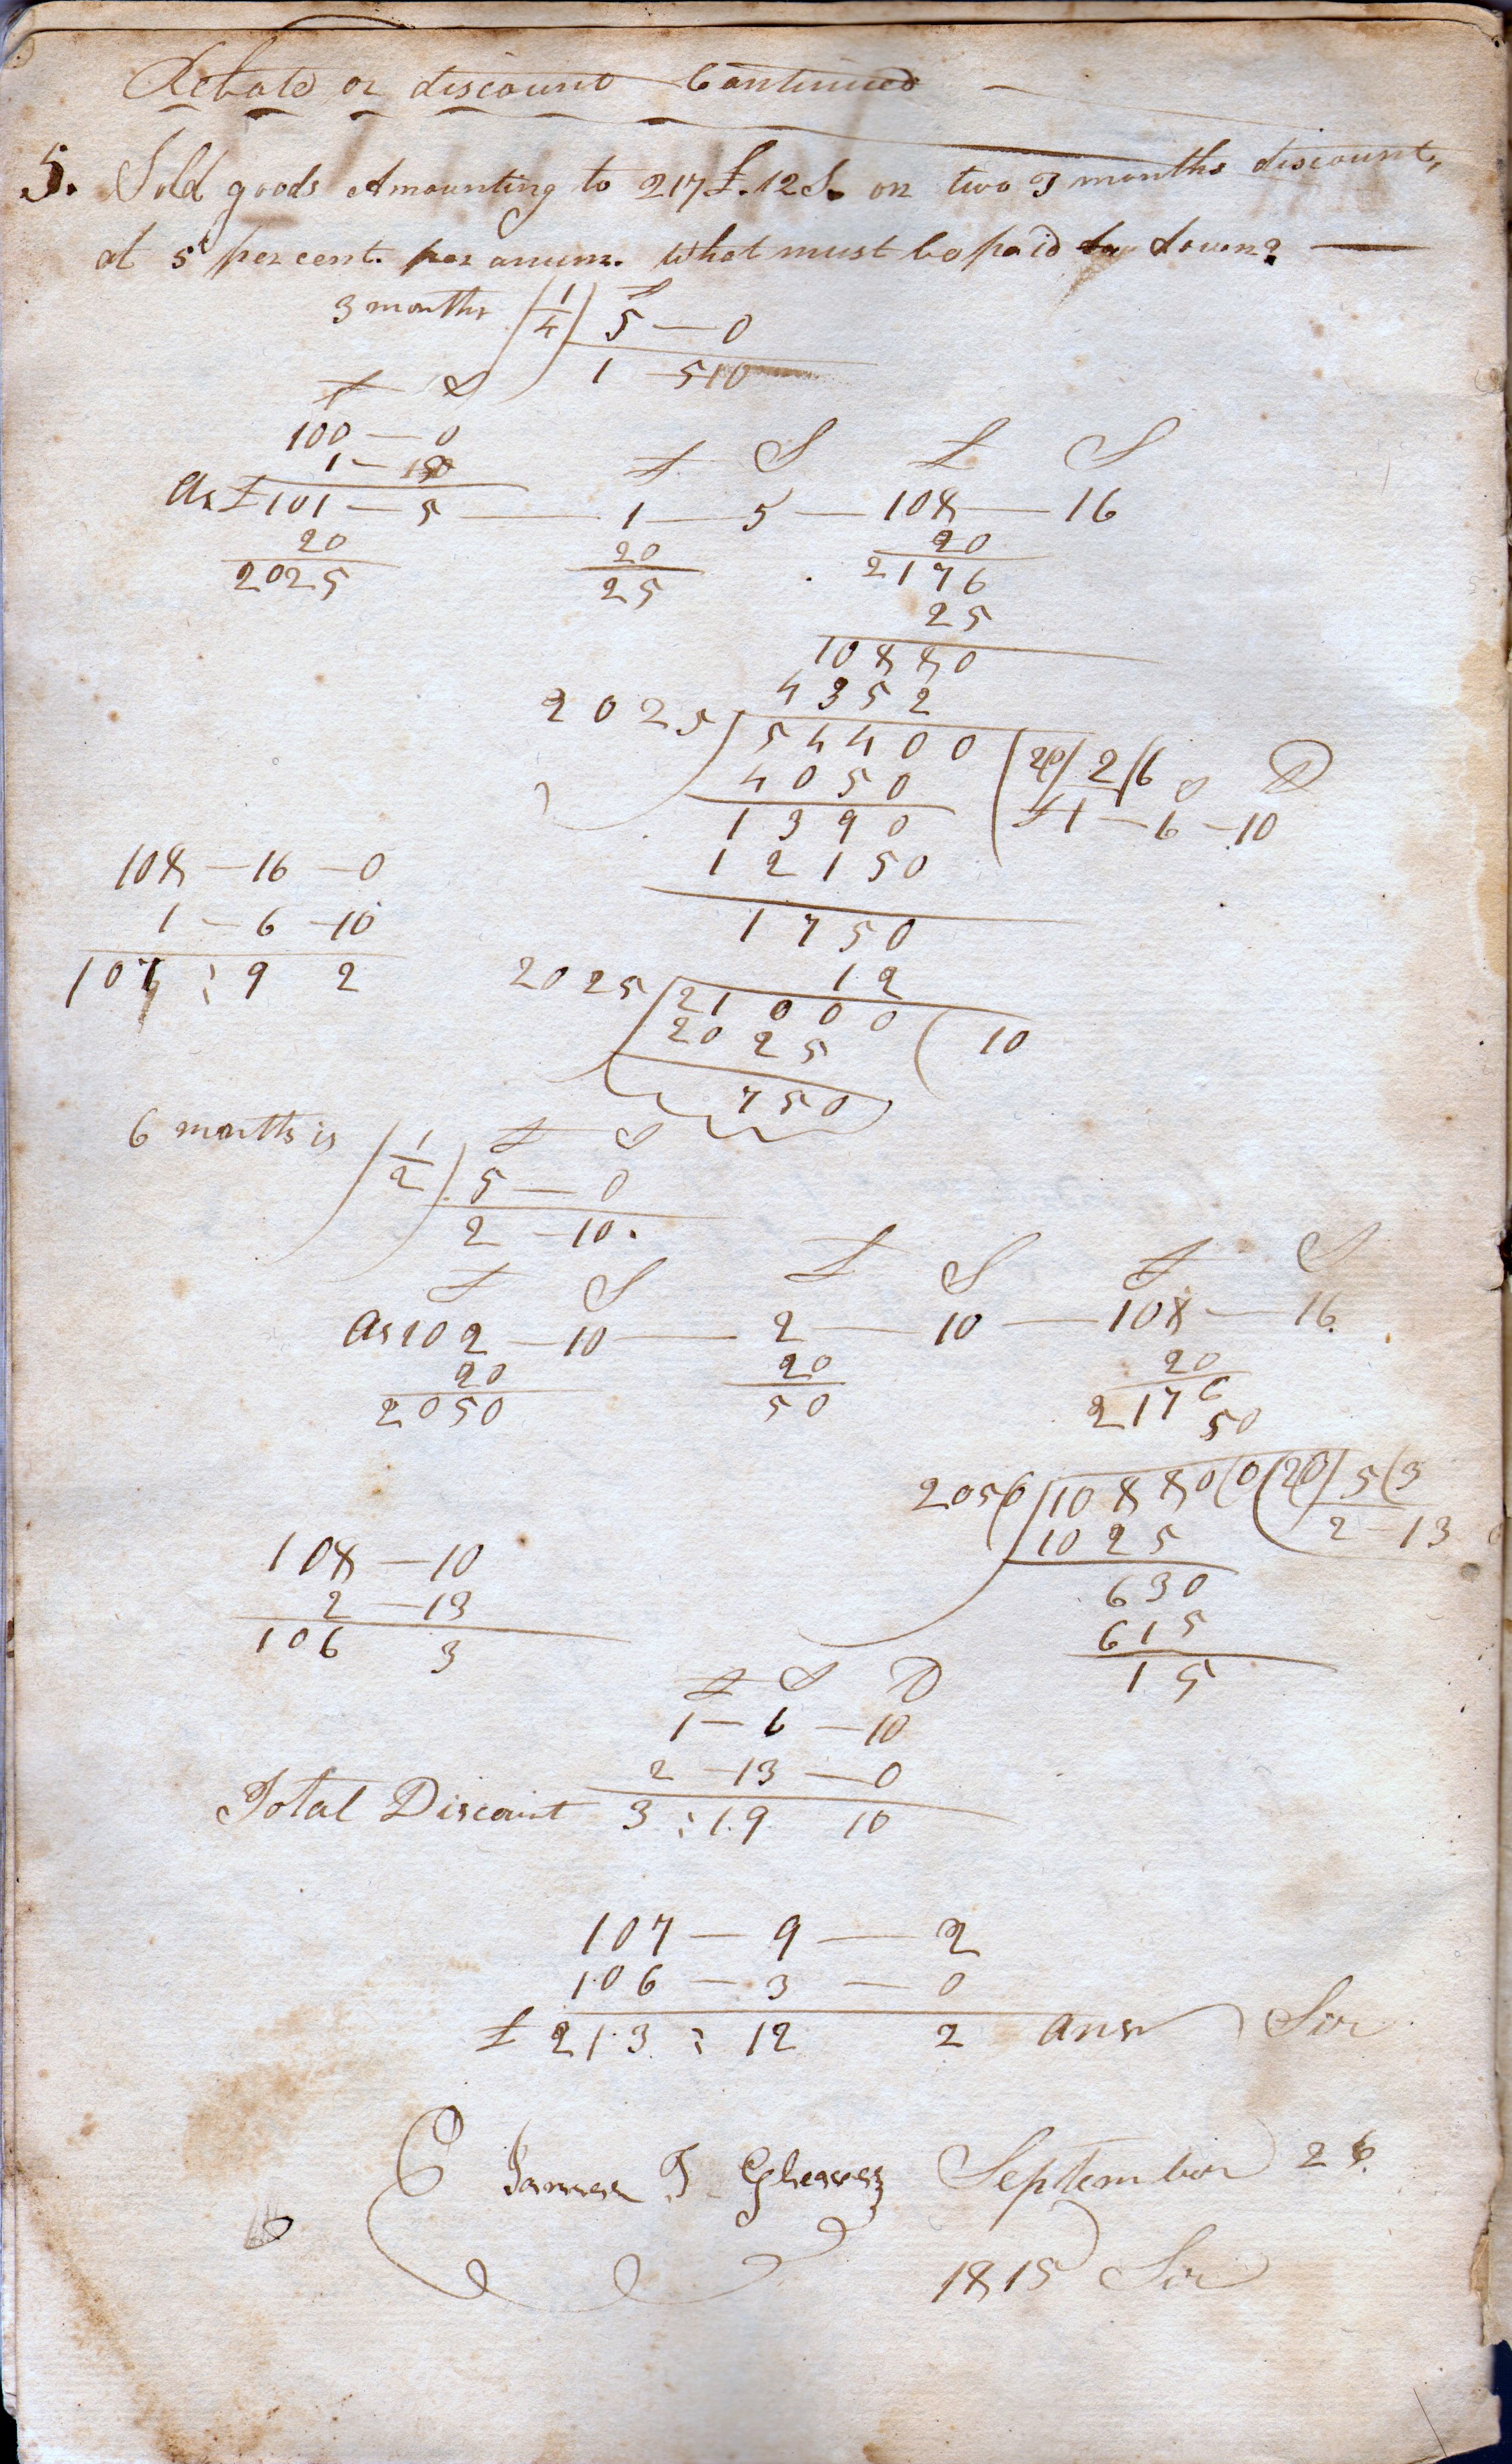 Rebate or discount Continued
5. Sold goods Amounting to 217£.12S. on two 3 months discount,
at 5 per cent. per anum. What must be paid down?
3 months 1/4 £
5 — 0
1 — 5
£ S
100 — 0
1 —
£ S £ S
As £101 — 5 — 1 — 5 — 108 — 16
20 20 20
2025 25 2176
25
10880
4352
2025 54400 (20/ 2/6 S D
4050 £1 — 6 — 10
1390
108 — 16 — 0
12150
1 — 6 — 10
1750
107 : 9 2
12
2025 21000 ( 10
2025
750
6 months is 1/2 £ S
5 — 0
2 — 10.
£ S £ S £ S
As 102 — 10 — 2 — 10 — 108 — 16
20 20 20
2050 50 2176
50
2050 108800 (20/ 5(3
1025 2 — 13
630
615
15
108 — 10
2 — 13
106 3
£ S D
1 — 6 — 10
2 — 13 — 0
Total Discount 3 : 19 10
107 — 9 — 2
106 — 3 — 0
£ 213 : 12 2 Answ Sir
James T Gleaves September 26
1815 Sir